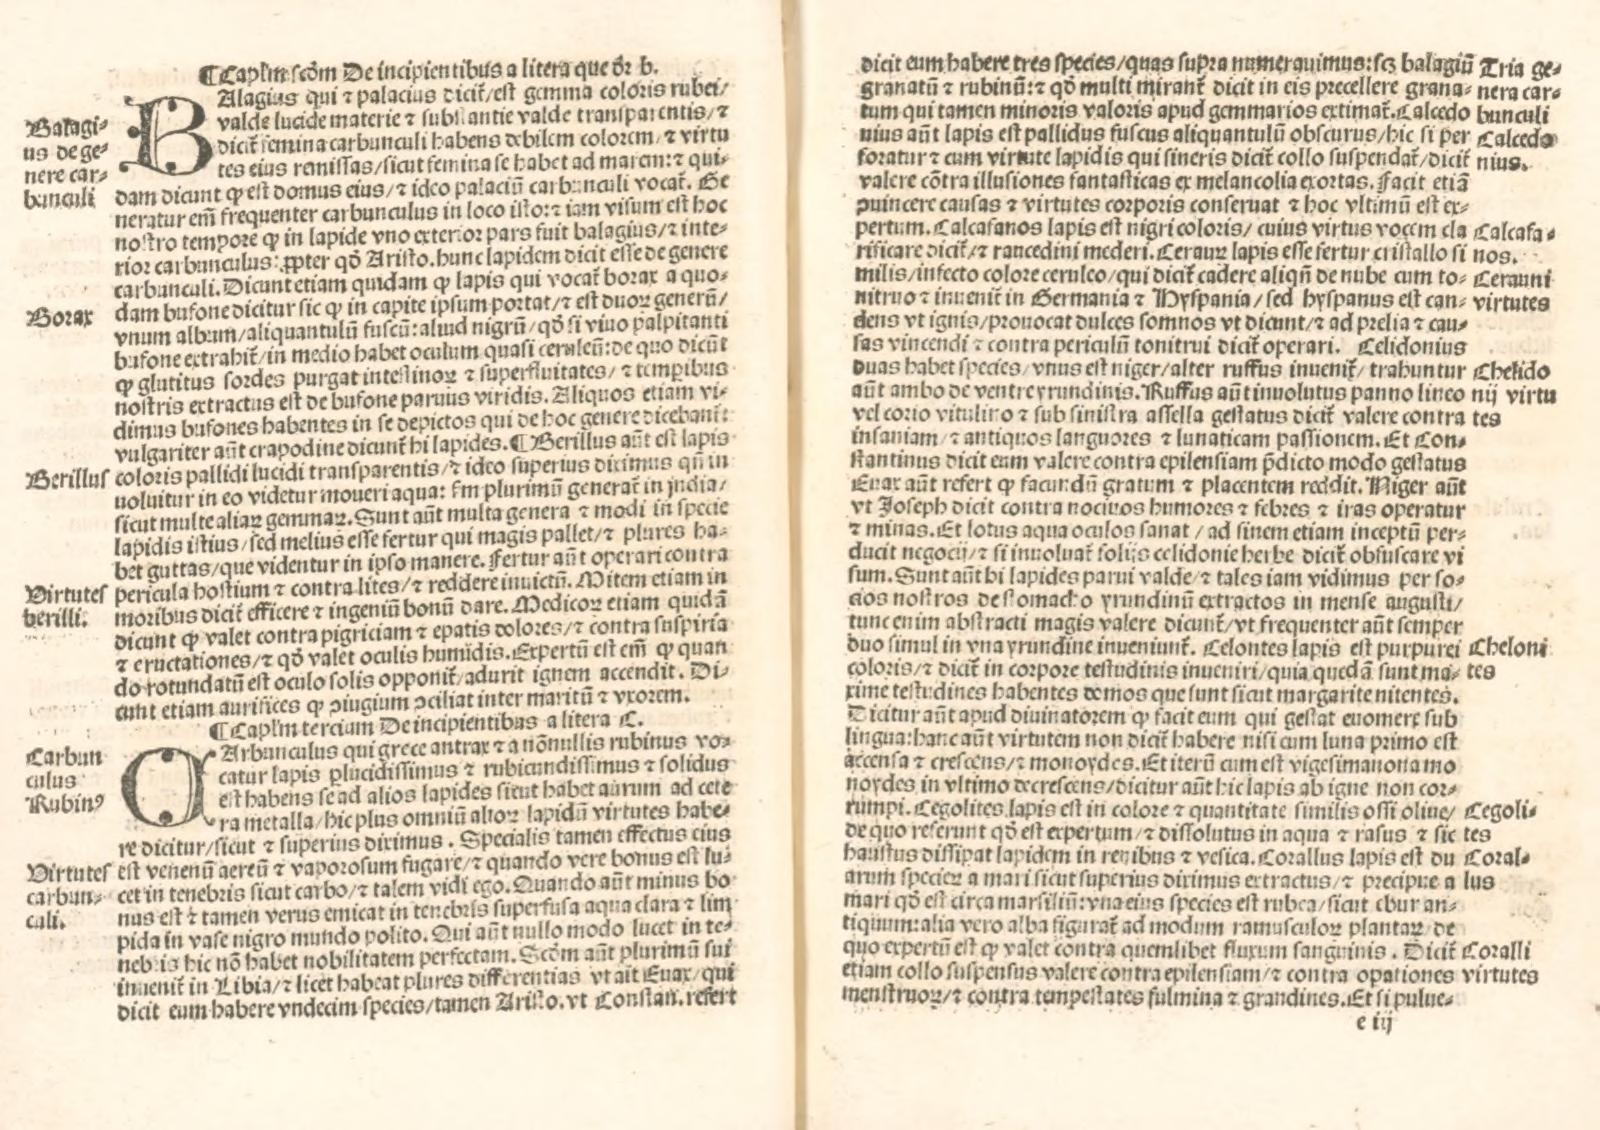 ¶Caplm scōm De incipientibus a litera que dr b.
Balagius qui ⁊ palacius dicit̄/est gemma coloris rubei/
valde lucide materie ⁊ substantie valde transparentis/⁊
dicit̄ femina carbunculi habens debilem colorem/⁊ virtu
tes eius remissas/sicut femina se habet ad marem:⁊ qui-
dam dicunt ꝙ est domus eius/⁊ ideo palaciū carbunculi vocat̄. Ge
neratur em̄ frequenter carbunculus in loco isto:⁊ iam visum est hoc
nostro tempore ꝙ in lapide vno exterior pars fuit balagius/⁊ inte-
rior carbunculus: ꝓpter qd̄ Aristo. hunc lapidem dicit esse de genere
carbunculi. Dicunt etiam quidam ꝙ lapis qui vocat̄ borax a quo-
dam bufone dicitur sic ꝙ in capite ipsum portat/⁊ est duoꝝ generū/
vnum album/aliquantulū fuscū: aliud nigrū/qd̄ si viuo palpitanti
bufone extrahit̄/in medio habet oculum quasi ceruleū: de quo dicūt
ꝙ glutitus sordes purgat intestinoꝝ ⁊ superfluitates/⁊ temp̄ibus
nostris extractus est de bufone paruus viridis. Aliquos etiam vi-
dimus bufones habentes in se depictos qui de hoc genere dicebant̄:
vulgariter aūt crapodine dicunt̄ hi lapides. ¶ Berillus aūt est lapis
coloris pallidi lucidi transparentis/⁊ ideo superius diximus qn̄ in
uoluitur in eo videtur moueri aqua: ſm plurimū generat̄ in india/
sicut multe aliaꝝ gemmaꝝ. Sunt aūt multa genera ⁊ modi in specie
lapidis istius/sed melius esse fertur qui magis pallet/⁊ plures ha-
bet guttas/que videntur in ipso manere. Fertur aūt operari contra
pericula hostium ⁊ contra lites/⁊ reddere inuictū. Mitem etiam in
moribus dicit̄ efficere ⁊ ingeniū bonū dare. Medicoꝝ etiam quidā
dicunt ꝙ valet contra pigriciam ⁊ epatis dolores/⁊ contra suspiria
⁊ eructationes/⁊ qd̄ valet oculis humidis. Expertū est em̄ ꝙ quan
do rotundatū est oculo solis opponit̄/adurit ignem accendit. Di-
cunt etiam aurifices ꝙ ↄiugium ↄciliat inter maritū ⁊ vxorem.
¶Caplm tercium De incipientibus a litera C.
Carbunculus qui grece antrax ⁊ a nōnullis rubinus vo-
catur lapis plucidissimus ⁊ rubicundissimus ⁊ solidus
est habens se ad alios lapides sicut habet aurum ad cete
ra metalla/hic plus omniū alioꝝ lapidū virtutes habe-
re dicitur/sicut ⁊ superius diximus. Specialis tamen effectus eius
est venenū aereū ⁊ vaporosum fugare/⁊ quando vere bonus est lu-
cet in tenebris sicut carbo/⁊ talem vidi ego. Quando aūt minus bo
nus est ⁊ tamen verus emicat in tenebris superfusa aqua clara ⁊ lim
pida in vase nigro mundo polito. Qui aūt nullo modo lucet in te-
nebris hic nō habet nobilitatem perfectam. Scōm aūt plurimū sui
inuenit̄ in Libia/⁊ licet habeat plures differentias vt ait Euax/qui
dicit eum habere vndecim species/tamen Aristo. vt Constan. refert
Balagi-
us de ge-
nere car-
bunculi
Borax
Berillus
Virtutes
berilli.
Carbun
culus
Rubinꝰ
Virtutes
carbun-
culi.
dicit eum habere tres species/quas supra numerauimus: scꝫ balagiū
granatū ⁊ rubinū:⁊ qd̄ multi mirant̄ dicit in eis precellere grana-
tum qui tamen minoris valoris apud gemmarios extimat̄. Calcedo
nius aūt lapis est pallidus fuscus aliquantulū obscurus/hic si per
foratur ⁊ cum virtute lapidis qui sineris dicit̄ collo suspendat̄/dicit̄
valere cōtra illusiones fantasticas ex melancolia exortas. Facit etiā
puincere causas ⁊ virtutes corporis conseruat ⁊ hoc vltimū est ex-
pertum. Calcafanos lapis est nigri coloris/ cuius virtus vocem cla
rificare dicit̄/⁊ raucedini mederi. Cerauꝝ lapis esse fertur cristallo si
milis/infecto colore ceruleo/qui dicit̄ cadere aliqn̄ de nube cum to-
nitruo ⁊ inuenit̄ in Germania ⁊ Hyspania/sed hyspanus est can-
dens vt ignis/prouocat dulces somnos vt dicunt/⁊ ad prelia ⁊ cau-
sas vincendi ⁊ contra periculū tonitrui dicit̄ operari. Celidonius
duas habet species/vnus est niger/alter ruffus inuenit̄/trahuntur
aūt ambo de ventre yrundinis. Ruffus aūt inuolutus panno lineo
vel corio vitulino ⁊ sub sinistra assella gestatus dicit̄ valere contra
insaniam/⁊ antiquos languores ⁊ lunaticam passionem. Et Con-
stantinus dicit eum valere contra epilensiam p̄dicto modo gestatus
Euax aūt refert ꝙ facundū gratum ⁊ placentem reddit. Niger aūt
vt Joseph dicit contra nociuos humores ⁊ febres ⁊ iras operatur
⁊ minas. Et lotus aqua oculos sanat/ad finem etiam inceptū per-
ducit negocij/⁊ si inuoluat̄ folijs celidonie herbe dicit̄ obfuscare vi
sum. Sunt aūt hi lapides parui valde/⁊ tales iam vidimus per so-
cios nostros de stomacho yrundinū extractos in mense augusti/
tunc enim abstracti magis valere dicunt̄/vt frequenter aūt semper
duo simul in vna yrundine inueniunt̄. Celontes lapis est purpurei
coloris/⁊ dicit̄ in corpore testudinis inueniri/quia quedā sunt ma-
xime testudines habentes domos que sunt sicut margarite nitentes.
Dicitur aūt apud diuinatorem ꝙ facit eum qui gestat euomere sub
lingua: hanc aūt virtutem non dicit̄ habere nisi cum luna primo est
accensa ⁊ crescens/⁊ monoydes. Et iterū cum est vigesimanona mo
noydes in vltimo decrescens/dicitur aūt hic lapis ab igne non cor-
rumpi. Cegolites lapis est in colore ⁊ quantitate similis ossi oliue/
de quo referunt qd̄ est expertum/⁊ dissolutus in aqua ⁊ rasus ⁊ sic
haustus dissipat lapidem in renibus ⁊ vesica. Corallus lapis est du
arum specieꝝ a mari sicut superius diximus extractus/⁊ precipue a
mari qd̄ est circa marsiliū: vna eius species est rubea/sicut ebur an-
tiquum: alia vero alba figurat̄ ad modum ramusculoꝝ plantaꝝ de
quo expertū est ꝙ valet contra quemlibet fluxum sanguinis. Dicit̄
etiam collo suspensus valere contra epilensiam/⁊ contra opationes
menstruoꝝ/⁊ contra tempestates fulmina ⁊ grandines. Et si pulue-
e iij
Tria ge-
nera car-
bunculi
Calcedo
nius.
Calcafa-
nos.
Cerauni
virtutes
Chelido
nij virtu
tes
Cheloni
tes
Cegoli-
tes
Coral-
lus
Coralli
virtutes